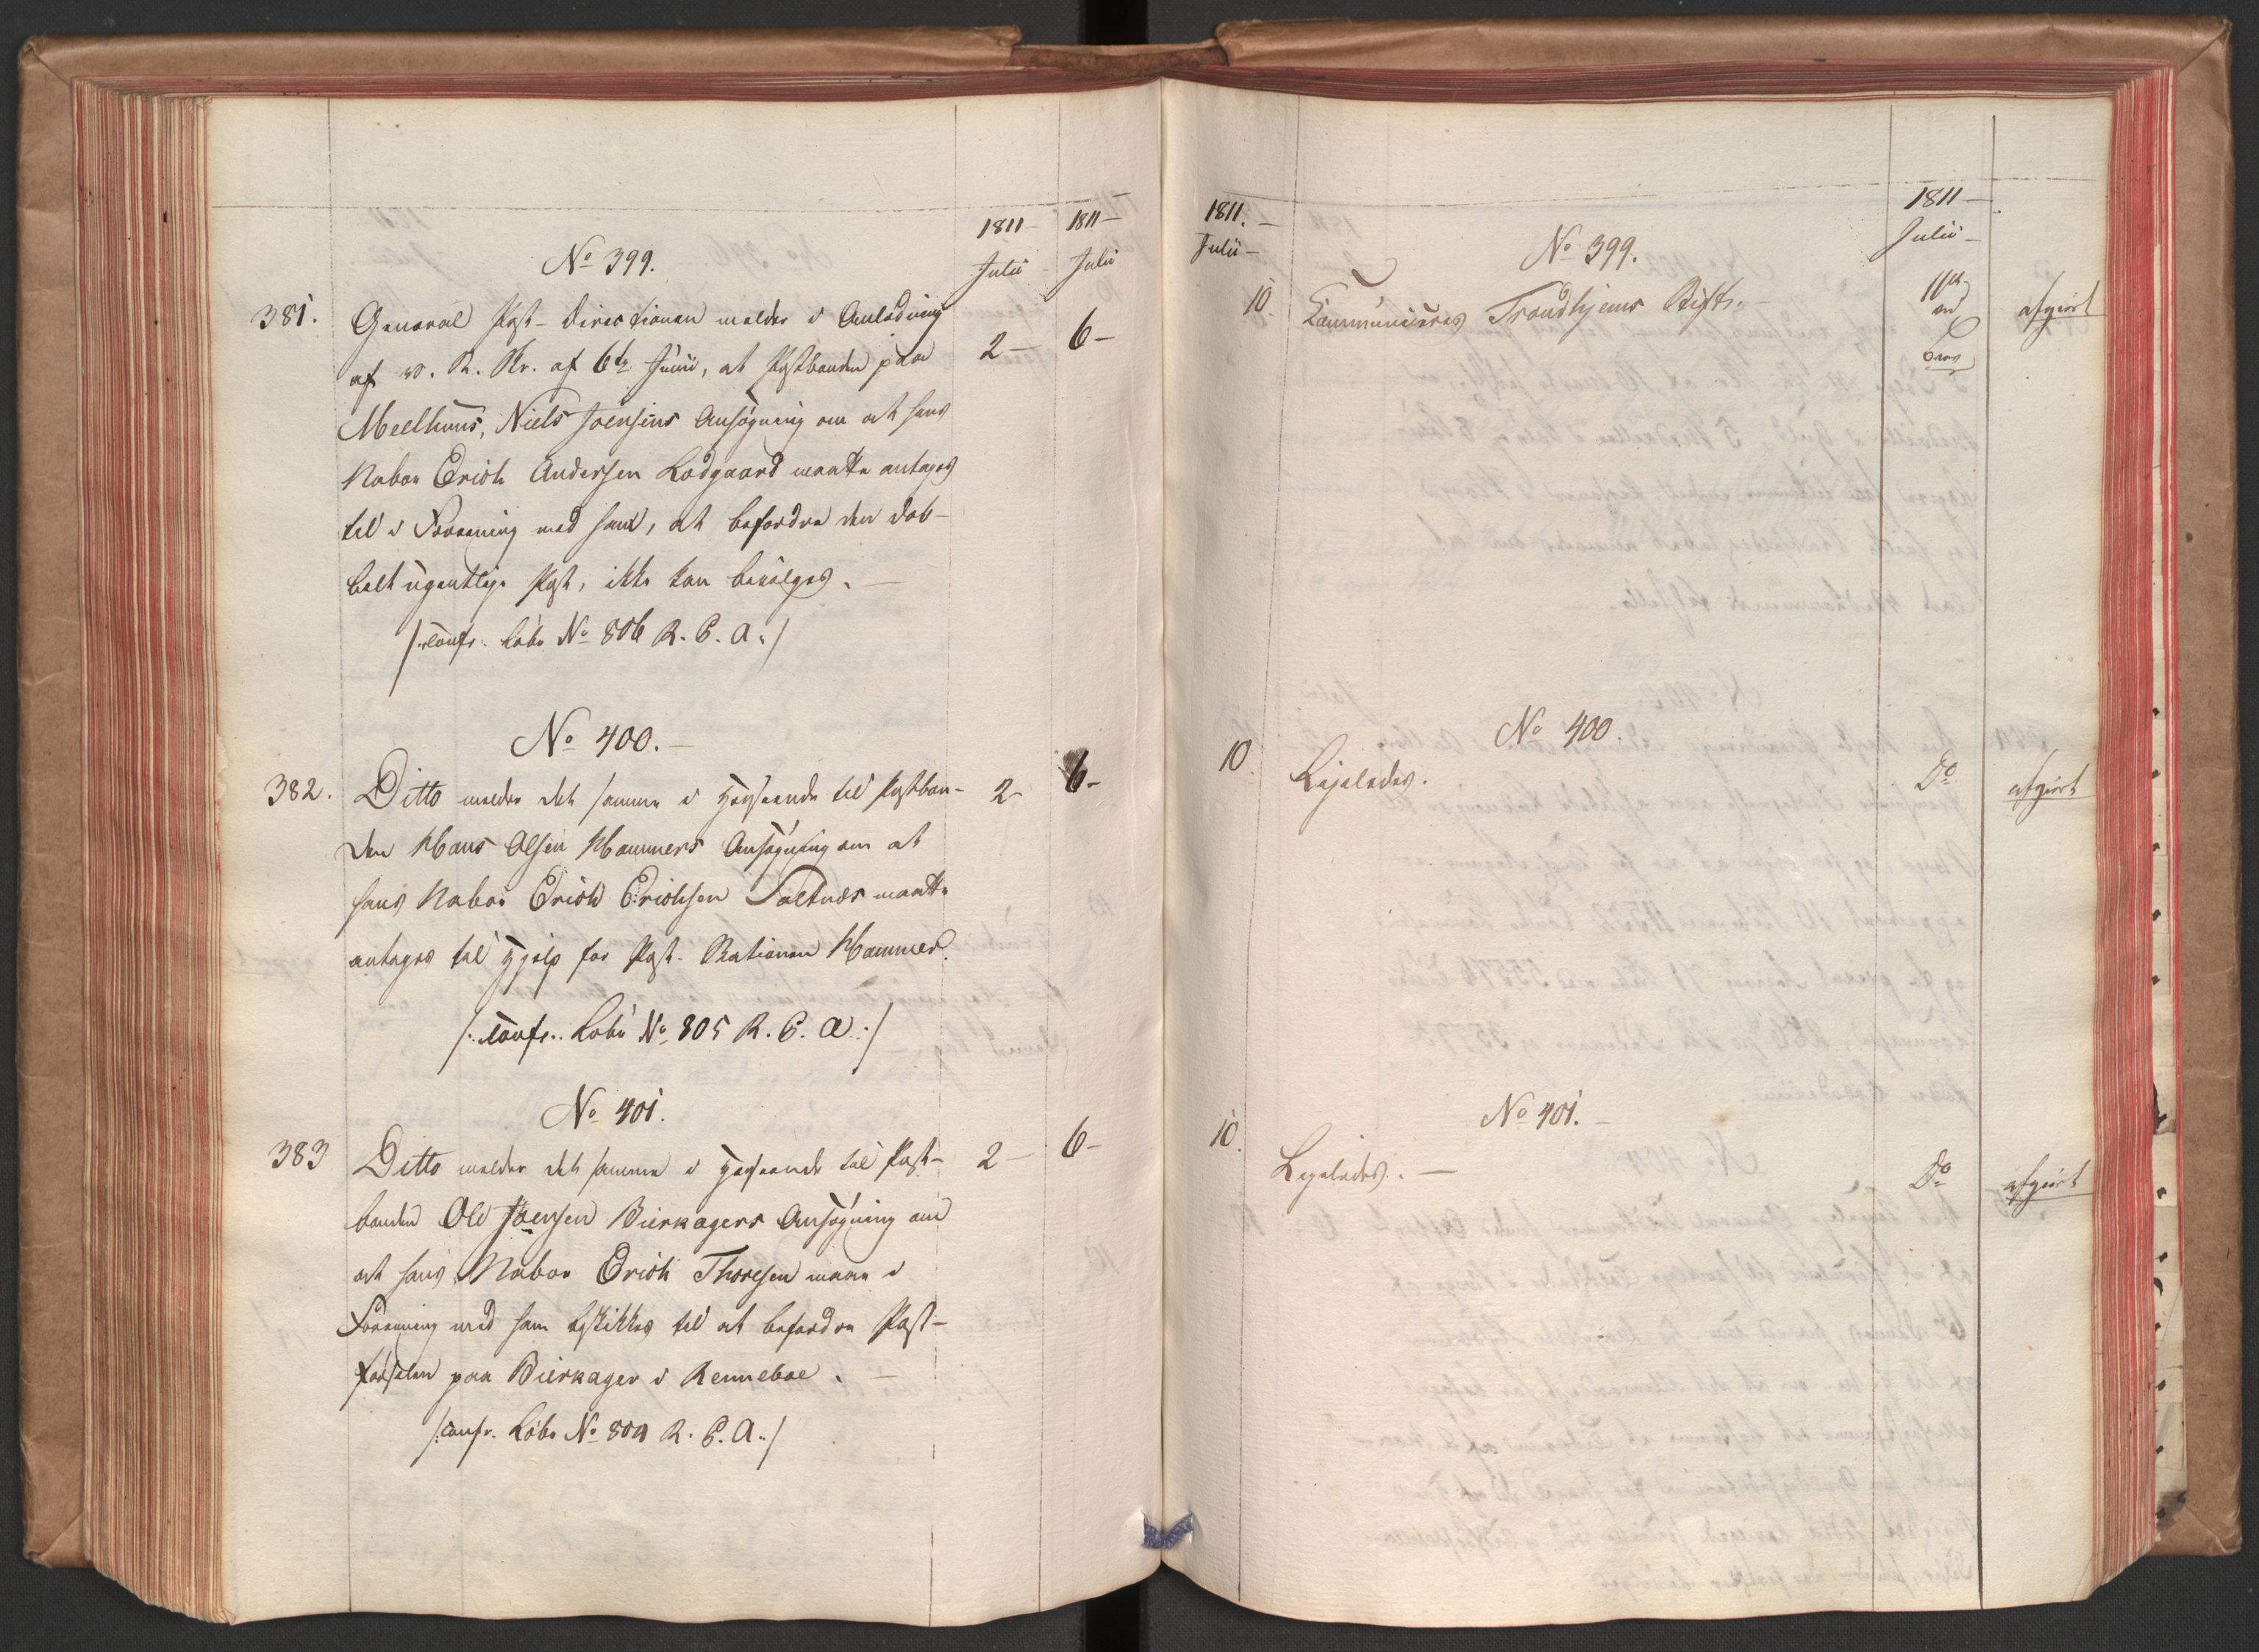 1811 1811
Julii Julii
No 399.
381. General Post-Directionen melder i Anledning
af R. Skr. af 6te Junii, at Postbonden paa 2 6
Meelhuus, Niels Joensens Ansøgning om at hans
Naboe Erich Andersen Lodgaard maatte antages
til i Foreening med ham, at befordre den dob-
belt ugentlige Post, ikke kan bevilges.
/:confr. Lobe No 806 R. C. A:/
No 400.
382. Ditto melder det samme i Henseende til Postbon- 2 6
den Hans Olsen Hammers Ansøgning om at
hans Naboe Erich Erichsen Saltnæs maatte
antages til Hjelp for Post-Stationen Hammer.
/:confr. Lobe No 805 R. C. A:/
No 401.
383 Ditto melder det samme i Henseende til Post- 2 6
bonden Ole Joensen Bierkagers Ansøgning om
at hans Naboe Erich Thoresen maae i
Foreening med ham beskikkes til at befordre Post-
førselen paa Bierkager i Renneboe.
/:confr. Lobe No 804 R. C. A:/
1811. 1811
Julii Julii
No 399.
10. Communiceres Trondhjems Stift. afgiort
No 400.
10. Ligeledes. Do afgiort
No 401.
10. Ligeledes. Do afgiort